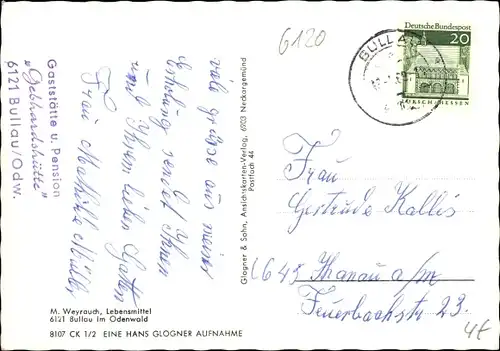 6120
Gaststätte u. Pension
„Gebhardshütte"
6121 Bullau/Odw.
viele grüße aus meiner
Erholung sendet Ihnen
und Ihrem lieben Gatten
Frau Mathilde Müller
Glogner & Sohn, Ansichtskarten-Verlag, 6903 Neckargemünd
Postfach 44
Deutsche Bundespost
20
LORSCH/HESSEN
BULLAU
Frau
Gertrude Kalles
645 Hanau a/m
Feuerbachstr 23.
M. Weyrauch, Lebensmittel
6121 Bullau im Odenwald
8107 CK 1/2 EINE HANS GLOGNER AUFNAHME
4t